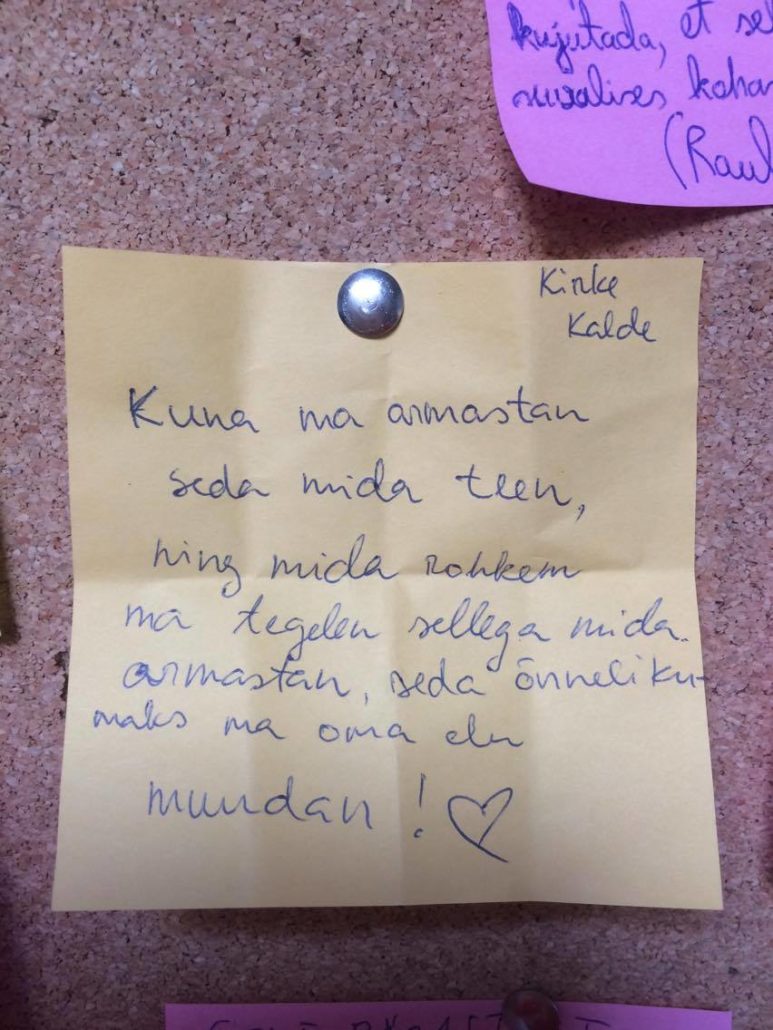 kujutada, et
suvalises
(Raul
Kirke
Kalde
Kuna ma armastan
seda mida teen,
ning mida rohkem
ma tegelen sellega mida
armastan, seda õnneliku-
maks ma oma elu
muudan!